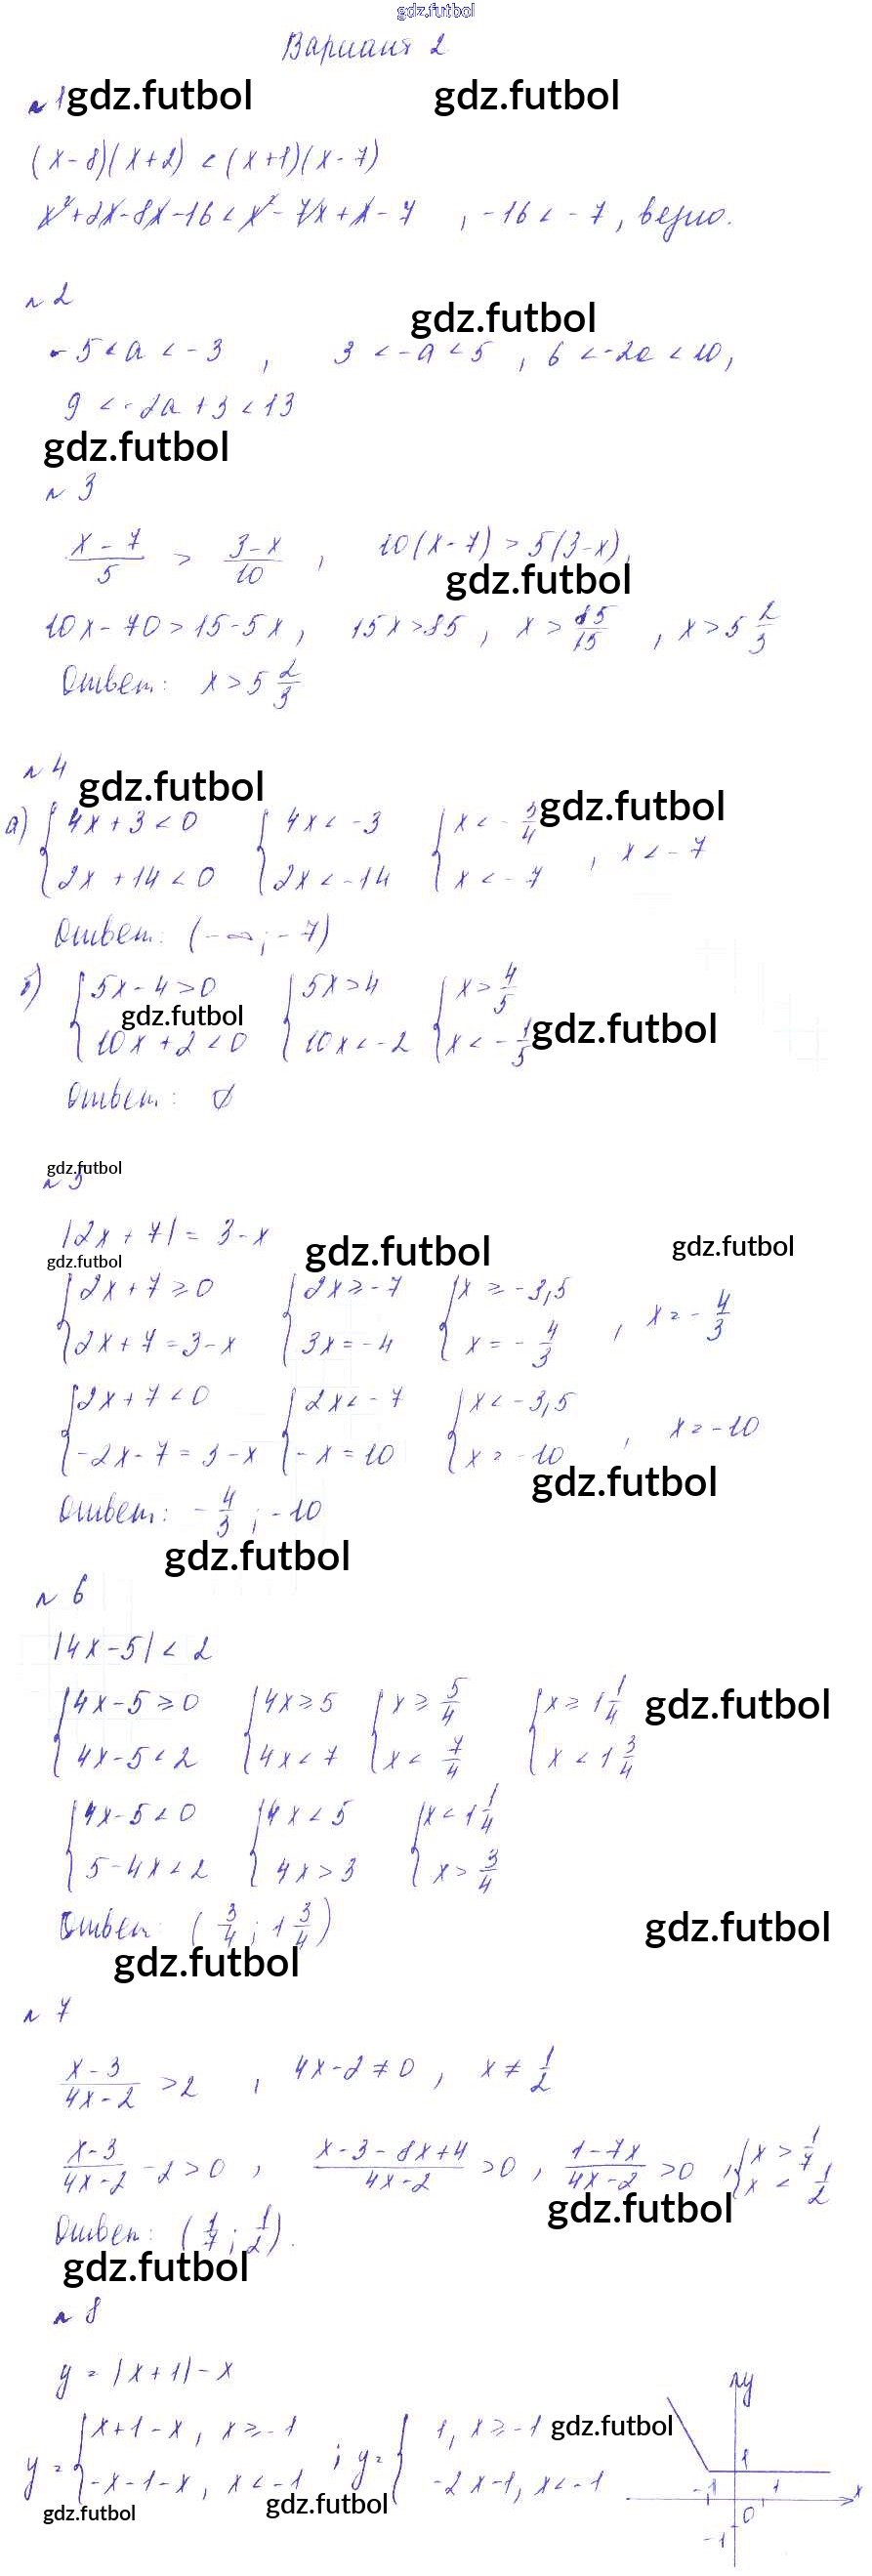 gdz.futbol
Вариант 2
№ 1 gdz.futbol gdz.futbol
(x-8)(x+2) < (x+1)(x-7)
x²+2x-8x-16 < x²-7x+x-7 , -16 < -7 , верно.
№ 2
gdz.futbol
-5 < a < -3 , 3 < -a < 5 , 6 < -2a < 10,
9 < -2a+3 < 13
gdz.futbol
№ 3
(x-7)/5 > (3-x)/10 , 10(x-7) > 5(3-x),
gdz.futbol
10x-70 > 15-5x, 15x > 85, x > 85/15 , x > 5 2/3
Ответ: x > 5 2/3
№ 4
gdz.futbol gdz.futbol
а) { 4x+3 < 0 { 4x < -3 { x < -3/4
2x+14 < 0 2x < -14 x < -7 , x < -7
Ответ: (-∞; -7)
б) { 5x-4 > 0 { 5x > 4 { x > 4/5
gdz.futbol gdz.futbol
10x+2 < 0 10x < -2 x < -1/5
Ответ: ∅
gdz.futbol
№ 5
|2x+7| = 3-x
gdz.futbol gdz.futbol gdz.futbol
{ 2x+7 ≥ 0 { 2x ≥ -7 { x ≥ -3,5
2x+7 = 3-x 3x = -4 x = -4/3 , x = -4/3
{ 2x+7 < 0 { 2x < -7 { x < -3,5
-2x-7 = 3-x -x = 10 x = -10 , x = -10
gdz.futbol
Ответ: -4/3 ; -10
gdz.futbol
№ 6
|4x-5| < 2
{ 4x-5 ≥ 0 { 4x ≥ 5 { x ≥ 5/4 { x ≥ 1 1/4 gdz.futbol
4x-5 < 2 4x < 7 x < 7/4 x < 1 3/4
{ 4x-5 < 0 { 4x < 5 { x < 1 1/4
5-4x < 2 4x > 3 x > 3/4
Ответ: (3/4 ; 1 3/4) gdz.futbol
gdz.futbol
№ 7
(x-3)/(4x-2) > 2 , 4x-2 ≠ 0 , x ≠ 1/2
(x-3)/(4x-2) -2 > 0 , (x-3-8x+4)/(4x-2) > 0 , (1-7x)/(4x-2) > 0 , { x > 1/7
x < 1/2
gdz.futbol
Ответ: (1/7 ; 1/2).
gdz.futbol
№ 8
y = |x+1|-x
y = { x+1-x, x ≥ -1 ; y = { 1, x ≥ -1 gdz.futbol
-x-1-x, x < -1 -2x-1, x < -1
gdz.futbol gdz.futbol
y
1
-1 1 x
0
-1